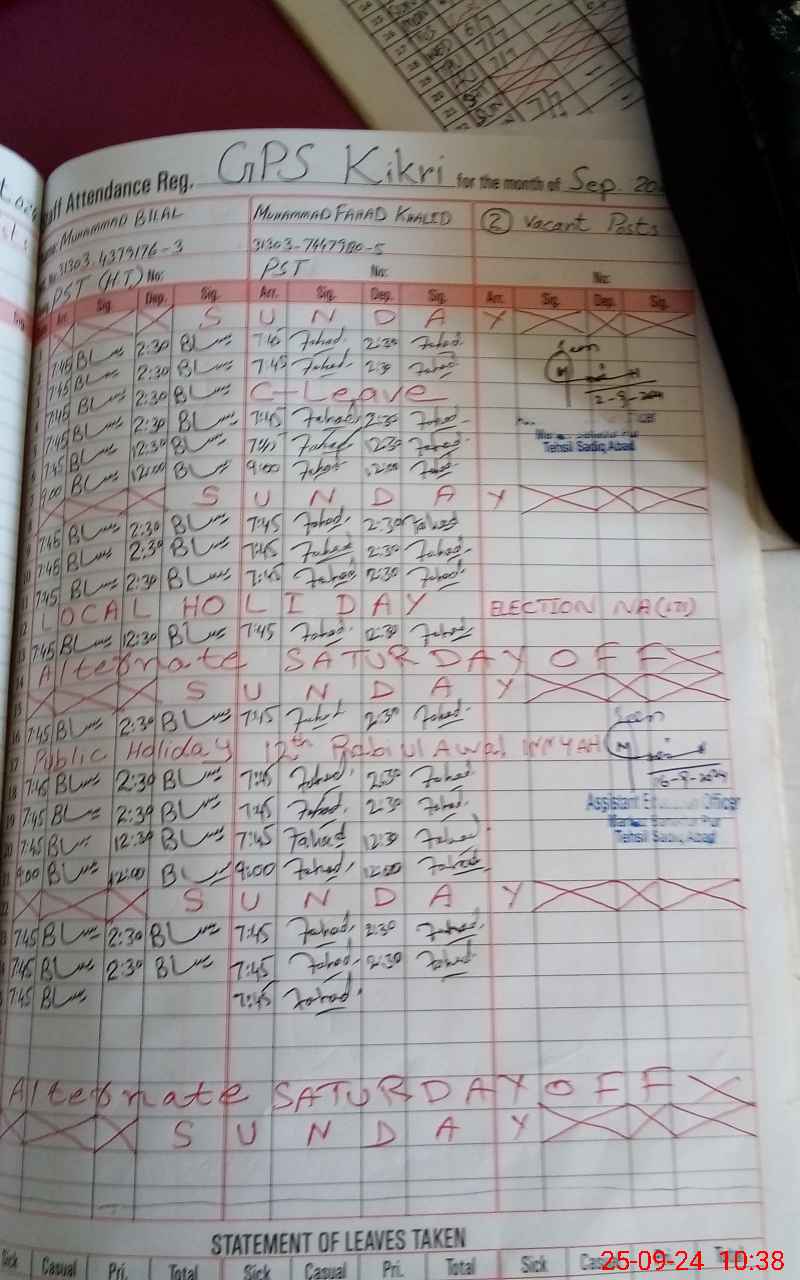 Staff Attendance Reg. GPS Kikri for the month of Sep. 20
MUHAMMAD BILAL MUHAMMAD FAHAD KHALED ② Vacant Posts
31303-4379176-3 31303-7447980-5
PST (HT) No: PST No: No:
Arr. Sig. Dep. Sig. Arr. Sig. Dep. Sig. Arr. Sig. Dep. Sig.
1 S U N D A Y
2 7:45 2:30 7:45 Fahad 2:30 Fahad Seen
3 7:45 2:30 7:45 Fahad 2:30 Fahad
4 7:45 2:30 C-Leave 12-9-2024
5 7:45 2:30 7:45 Fahad 2:30 Fahad
6 7:45 12:30 7:45 Fahad 12:30 Fahad Tehsil Sadiq Abad
7 9:00 12:00 9:00 Fahad 12:00 Fahad
8 S U N D A Y
9 7:45 2:30 7:45 Fahad 2:30 Fahad
10 7:45 2:30 7:45 Fahad 2:30 Fahad
11 7:45 2:30 7:45 Fahad 2:30 Fahad
12 LOCAL HOLIDAY ELECTION NA(171)
13 7:45 12:30 7:45 Fahad 12:30 Fahad
14 Alternate SATURDAY OFF
15 S U N D A Y
16 7:45 2:30 7:45 Fahad 2:30 Fahad Seen
17 Public Holiday 12th Rabiul Awal
18 7:45 2:30 7:45 Fahad 2:30 Fahad 16-9-2024
19 7:45 2:30 7:45 Fahad 2:30 Fahad Assistant Education Officer
20 7:45 12:30 7:45 Fahad 12:30 Fahad
Tehsil Sadiq Abad
21 9:00 12:00 9:00 Fahad 12:00 Fahad
22 S U N D A Y
7:45 2:30 7:45 Fahad 2:30 Fahad
7:45 2:30 7:45 Fahad 2:30 Fahad
7:45 7:45 Fahad
Alternate SATURDAY OFF
S U N D A Y
STATEMENT OF LEAVES TAKEN
Sick Casual Pri. Total Sick Casual Pri. Total Sick Casual Pri. Total
25-09-24 10:38